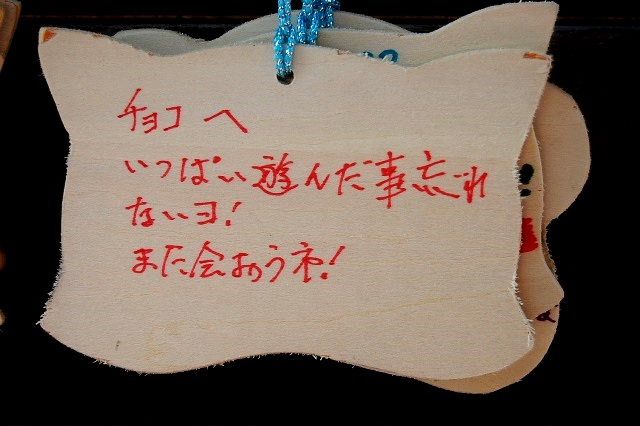 チョコ へ
いっぱい遊んだ事忘れ
ないヨ!
また会おうネ!